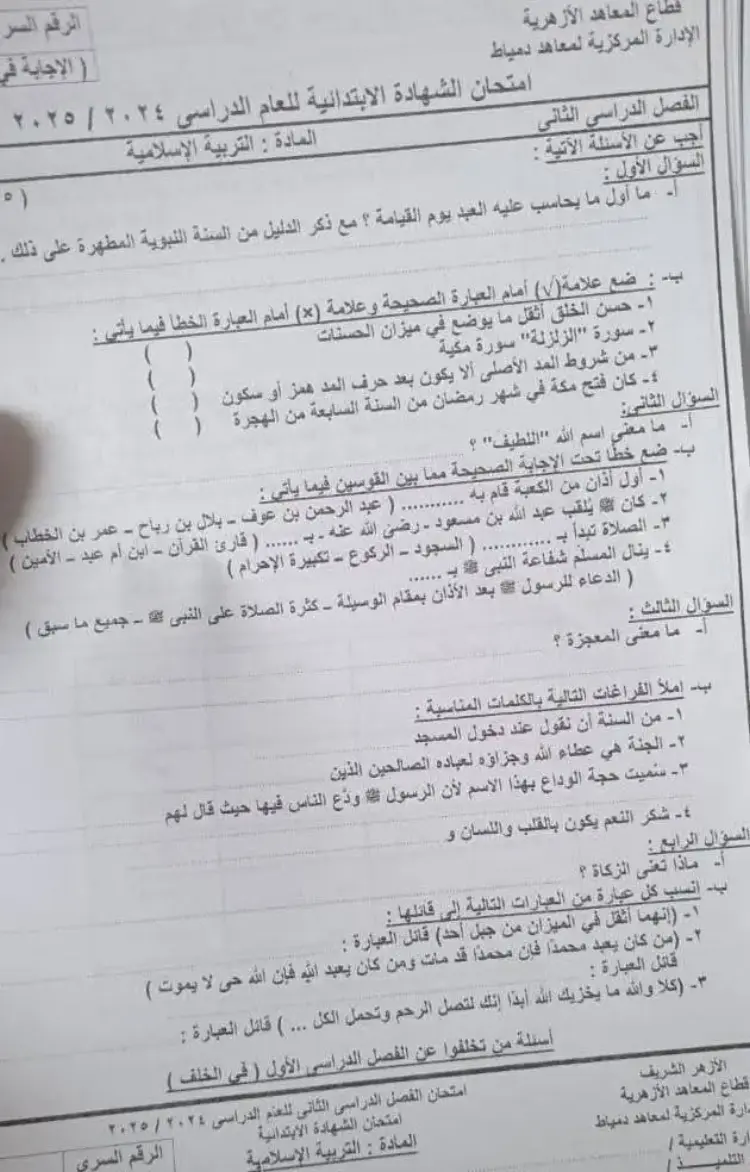 قطاع المعاهد الأزهرية
الرقم السر
الإدارة المركزية لمعاهد دمياط
( الإجابة في
امتحان الشهادة الابتدائية للعام الدراسي ٢٠٢٤ / ٢٠٢٥
الفصل الدراسي الثاني
المادة : التربية الإسلامية
أجب عن الأسئلة الآتية :
السؤال الأول :
أ- ما أول ما يحاسب عليه العبد يوم القيامة ؟ مع ذكر الدليل من السنة النبوية المطهرة على ذلك .
ب- : ضع علامة(√) أمام العبارة الصحيحة وعلامة (×) أمام العبارة الخطأ فيما يأتي :
١- حسن الخلق أثقل ما يوضع في ميزان الحسنات ( )
٢- سورة "الزلزلة" سورة مكية ( )
٣- من شروط المد الأصلى ألا يكون بعد حرف المد همز أو سكون ( )
٤- كان فتح مكة في شهر رمضان من السنة السابعة من الهجرة ( )
السؤال الثاني:
أ- ما معنى اسم الله "اللطيف" ؟
ب- ضع خطا تحت الإجابة الصحيحة مما بين القوسين فيما يأتي :
١- أول أذان من الكعبة قام به ........... ( عبد الرحمن بن عوف – بلال بن رباح – عمر بن الخطاب )
٢- كان ﷺ يُلقب عبد الله بن مسعود - رضي الله عنه - بـ ...... ( قارئ القرآن – ابن أم عبد – الأمين )
٣- الصلاة تبدأ بـ ............ ( السجود – الركوع – تكبيرة الإحرام )
٤- ينال المسلم شفاعة النبي ﷺ بـ ......
( الدعاء للرسول ﷺ بعد الأذان بمقام الوسيلة – كثرة الصلاة على النبي ﷺ – جميع ما سبق )
السؤال الثالث :
أ- ما معنى المعجزة ؟
ب- املأ الفراغات التالية بالكلمات المناسبة :
١- من السنة أن نقول عند دخول المسجد
٢- الجنة هي عطاء الله وجزاؤه لعباده الصالحين الذين
٣- سُميت حجة الوداع بهذا الاسم لأن الرسول ﷺ ودَّع الناس فيها حيث قال لهم
٤- شكر النعم يكون بالقلب واللسان و
السؤال الرابع :
أ- ماذا تعنى الزكاة ؟
ب- انسب كل عبارة من العبارات التالية إلى قائلها :
١- (إنهما أثقل في الميزان من جبل أحد) قائل العبارة :
٢- (من كان يعبد محمدًا فإن محمدًا قد مات ومن كان يعبد الله فإن الله حى لا يموت )
قائل العبارة :
٣- (كلا والله ما يخزيك الله أبدًا إنك لتصل الرحم وتحمل الكل ... ) قائل العبارة :
أسئلة من تخلفوا عن الفصل الدراسي الأول ( في الخلف )
الأزهر الشريف
قطاع المعاهد الأزهرية
امتحان الفصل الدراسي الثاني للعام الدراسي ٢٠٢٤ / ٢٠٢٥
امتحان الشهادة الابتدائية
المادة : التربية الإسلامية
الرقم السرى